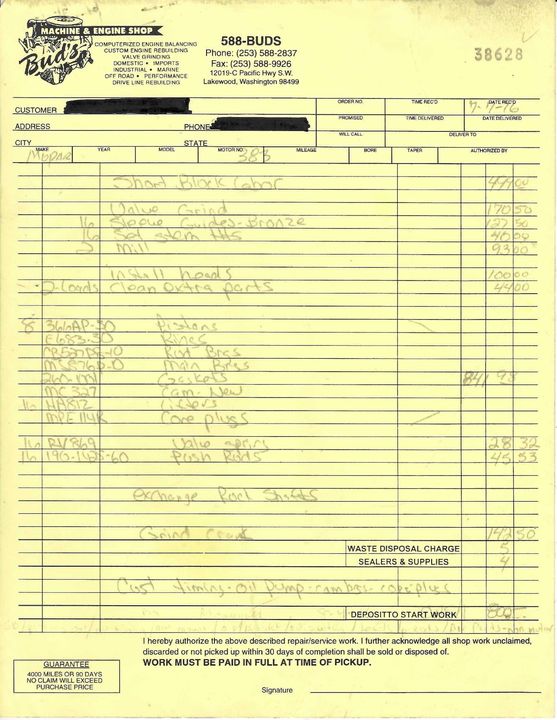 MACHINE & ENGINE SHOP
Bud's
COMPUTERIZED ENGINE BALANCING
CUSTOM ENGINE REBUILDING
VALVE GRINDING
DOMESTIC • IMPORTS
INDUSTRIAL • MARINE
OFF ROAD • PERFORMANCE
DRIVE LINE REBUILDING
588-BUDS
Phone: (253) 588-2837
Fax: (253) 588-9926
12019-C Pacific Hwy S.W.
Lakewood, Washington 98499
38628
CUSTOMER
ORDER NO. TIME REC'D DATE REC'D
ADDRESS PHONE
PROMISED TIME DELIVERED DATE DELIVERED
CITY STATE
WILL CALL DELIVER TO
MAKE YEAR MODEL MOTOR NO. MILEAGE BORE TAPER AUTHORIZED BY
Mopar 383
Short Block Labor
Valve Grind 170 50
16 Sleeve Guides-Bronze 127 50
16 Set stem hts 40 00
2 Mill 93 00
Install heads 100 00
2-Loads Clean extra parts 44 00
8 366AP-30 Pistons
E683-30 Rings
Rod Brgs
Main Brgs
Gaskets 841 98
MC 327 Cam-New
16 Lifters
MPE 114K Core plugs
16 RV869 Valve spring 28 32
16 Push Rods 45 53
exchange Rock Shafts
Grind crank 142 50
WASTE DISPOSAL CHARGE 5
SEALERS & SUPPLIES 4
Cust timing-oil pump
DEPOSIT TO START WORK 800
I hereby authorize the above described repair/service work. I further acknowledge all shop work unclaimed,
discarded or not picked up within 30 days of completion shall be sold or disposed of.
WORK MUST BE PAID IN FULL AT TIME OF PICKUP.
GUARANTEE
4000 MILES OR 90 DAYS
NO CLAIM WILL EXCEED
PURCHASE PRICE
Signature